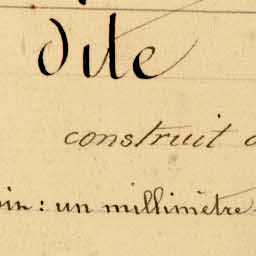 dite
construit
: un millimètre